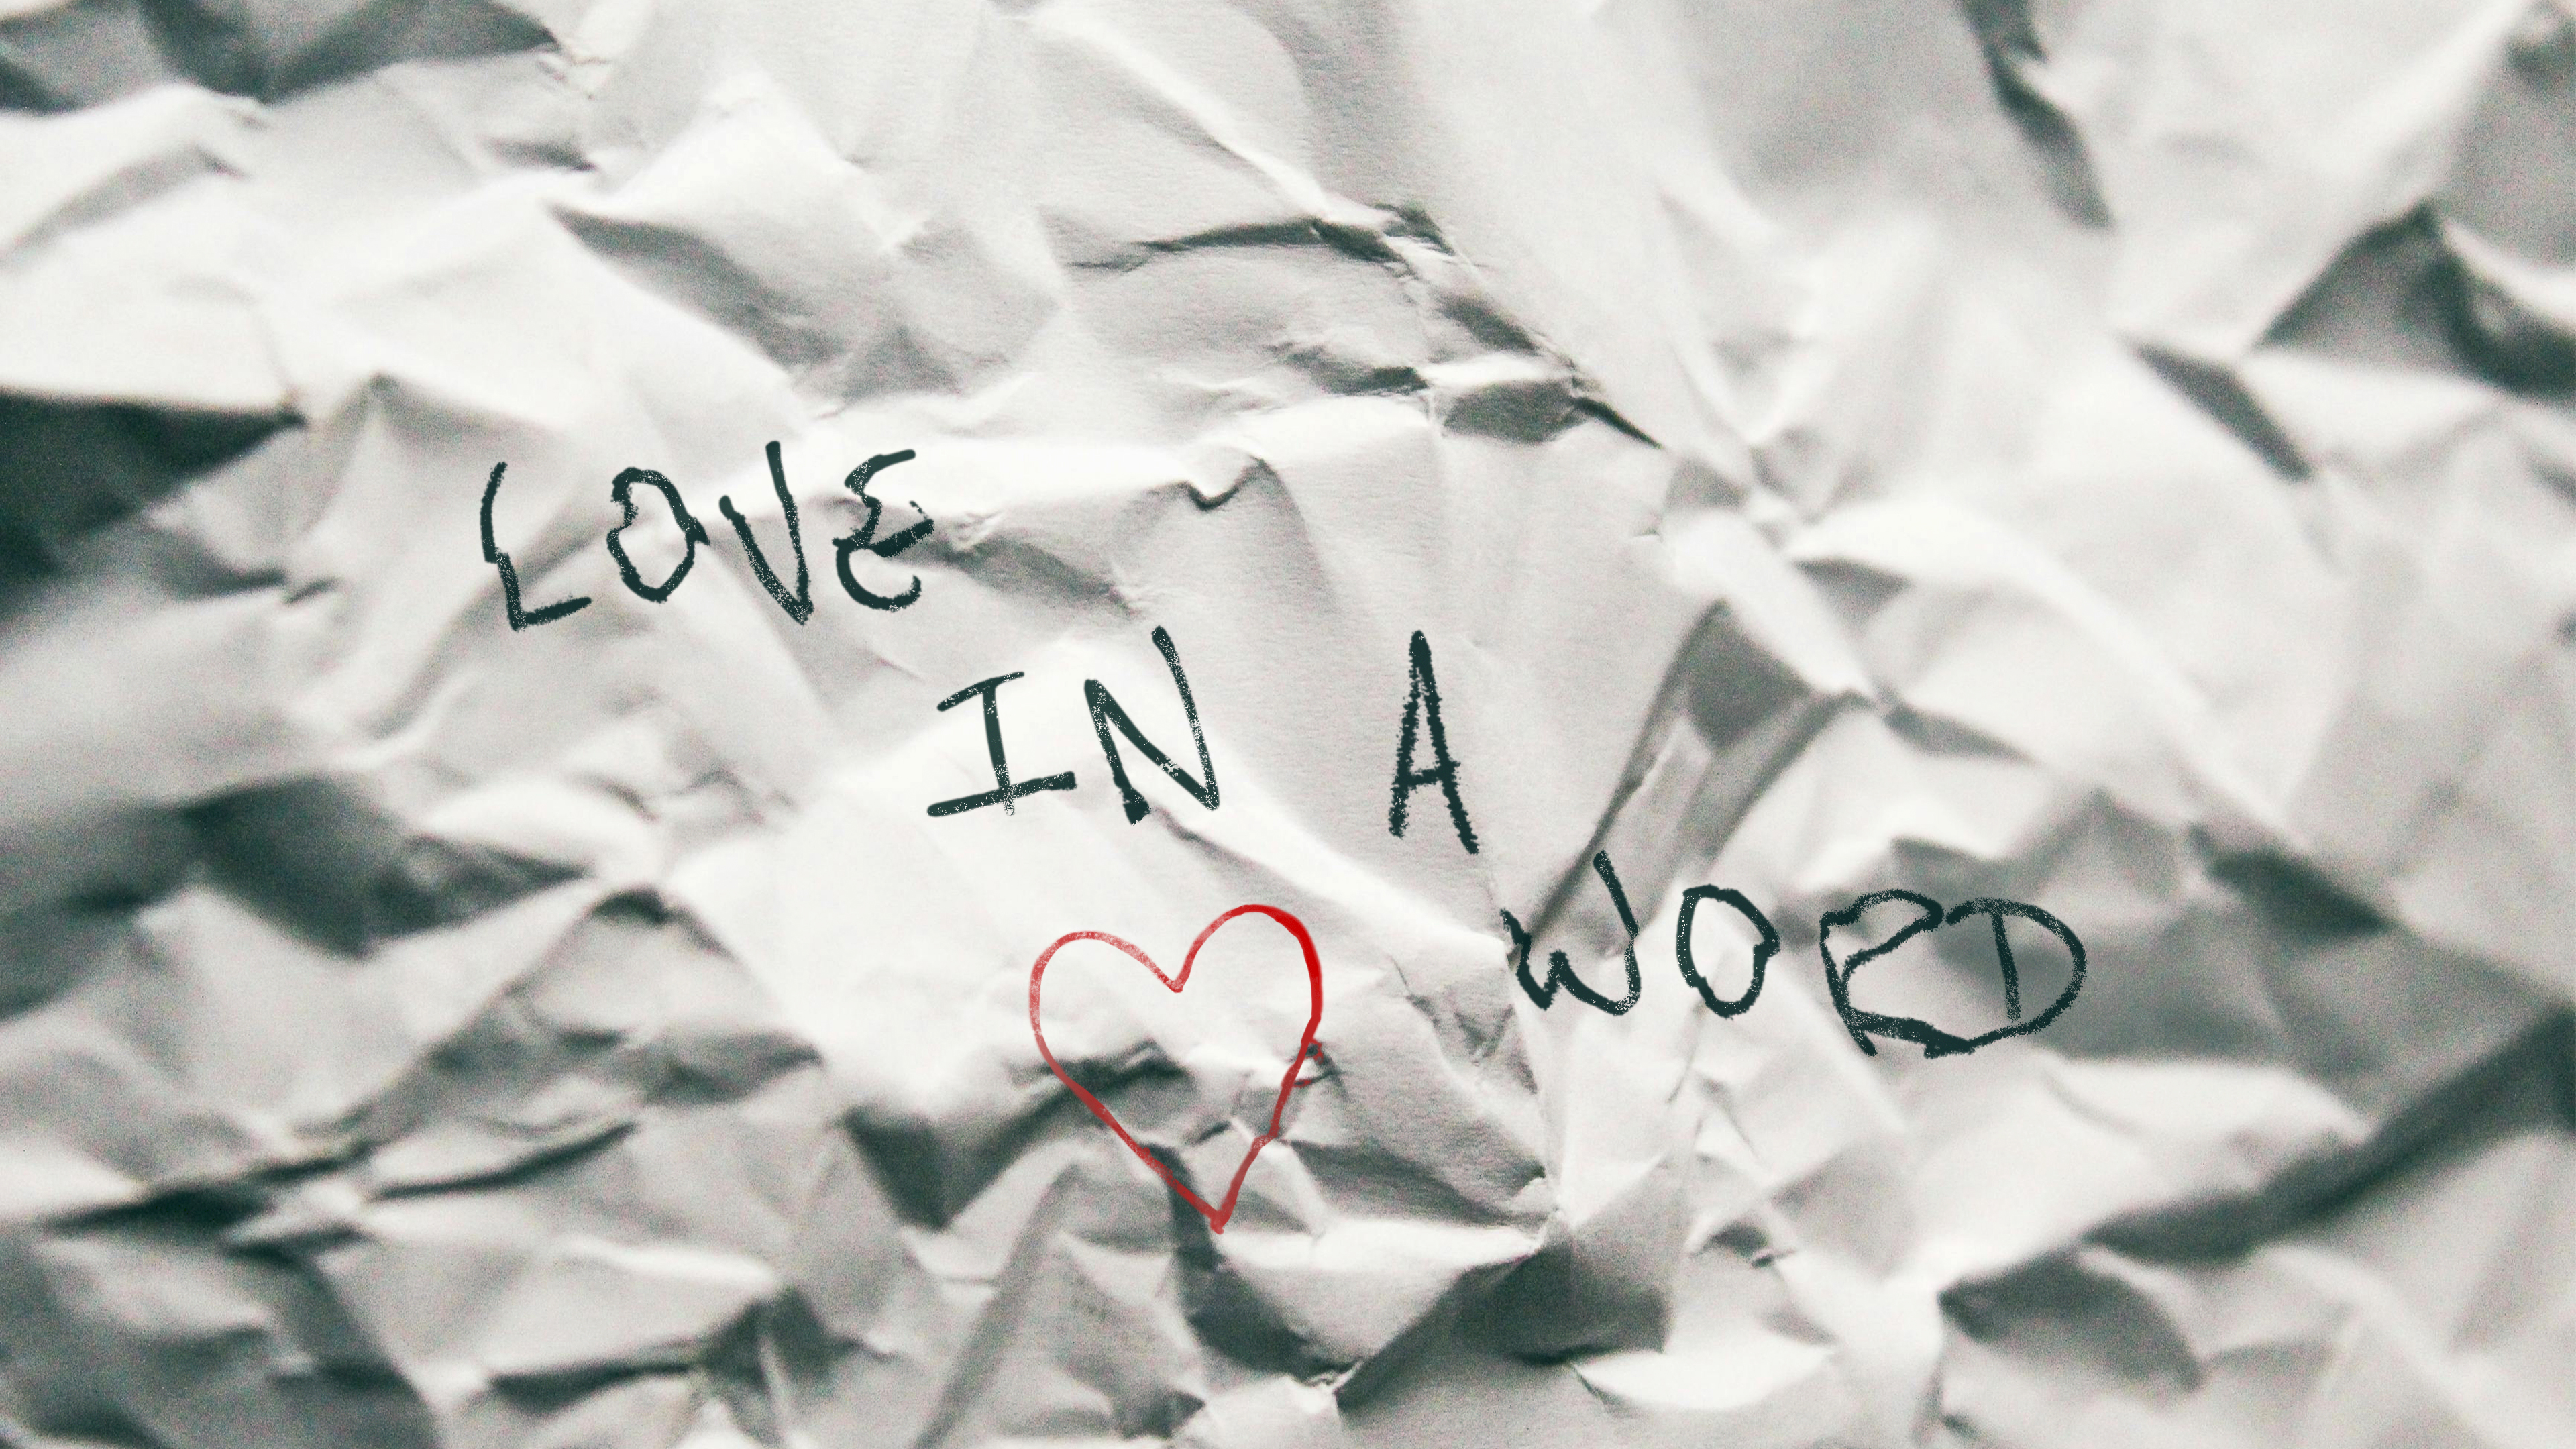 LOVE
IN A
WORD